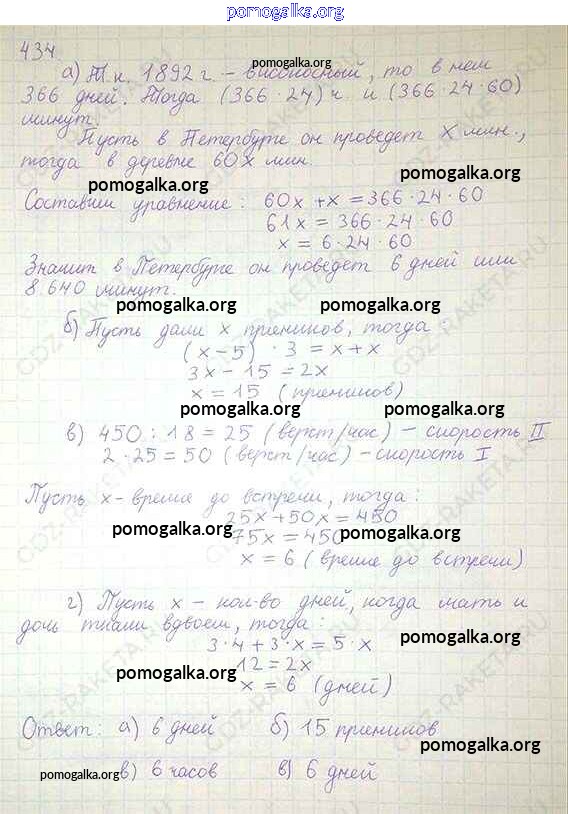 pomogalka.org
434
а) Т.к. 1892 г. – високосный, то в нем
pomogalka.org
366 дней. Тогда (366·24) ч и (366·24·60)
минут.
Пусть в Петербурге он проведет x мин.,
тогда в деревне 60x мин.
pomogalka.org
pomogalka.org
Составим уравнение: 60x + x = 366·24·60
61x = 366·24·60
x = 6·24·60
Значит в Петербурге он проведет 6 дней или
8 640 минут.
pomogalka.org
pomogalka.org
б) Пусть дали x пряников, тогда:
(x – 5) · 3 = x + x
3x – 15 = 2x
x = 15 (пряников)
pomogalka.org
pomogalka.org
в) 450 : 18 = 25 (верст/час) – скорость II
2 · 25 = 50 (верст/час) – скорость I
Пусть x - время до встречи, тогда:
25x + 50x = 450
pomogalka.org
pomogalka.org
75x = 450
x = 6 (время до встречи)
г) Пусть x – кол-во дней, когда мать и
дочь ткали вдвоем, тогда:
pomogalka.org
3·4 + 3·x = 5·x
12 = 2x
pomogalka.org
x = 6 (дней)
Ответ: а) 6 дней б) 15 пряников
pomogalka.org
pomogalka.org
в) 6 часов в) 6 дней
GDZ-RAKETA.RU